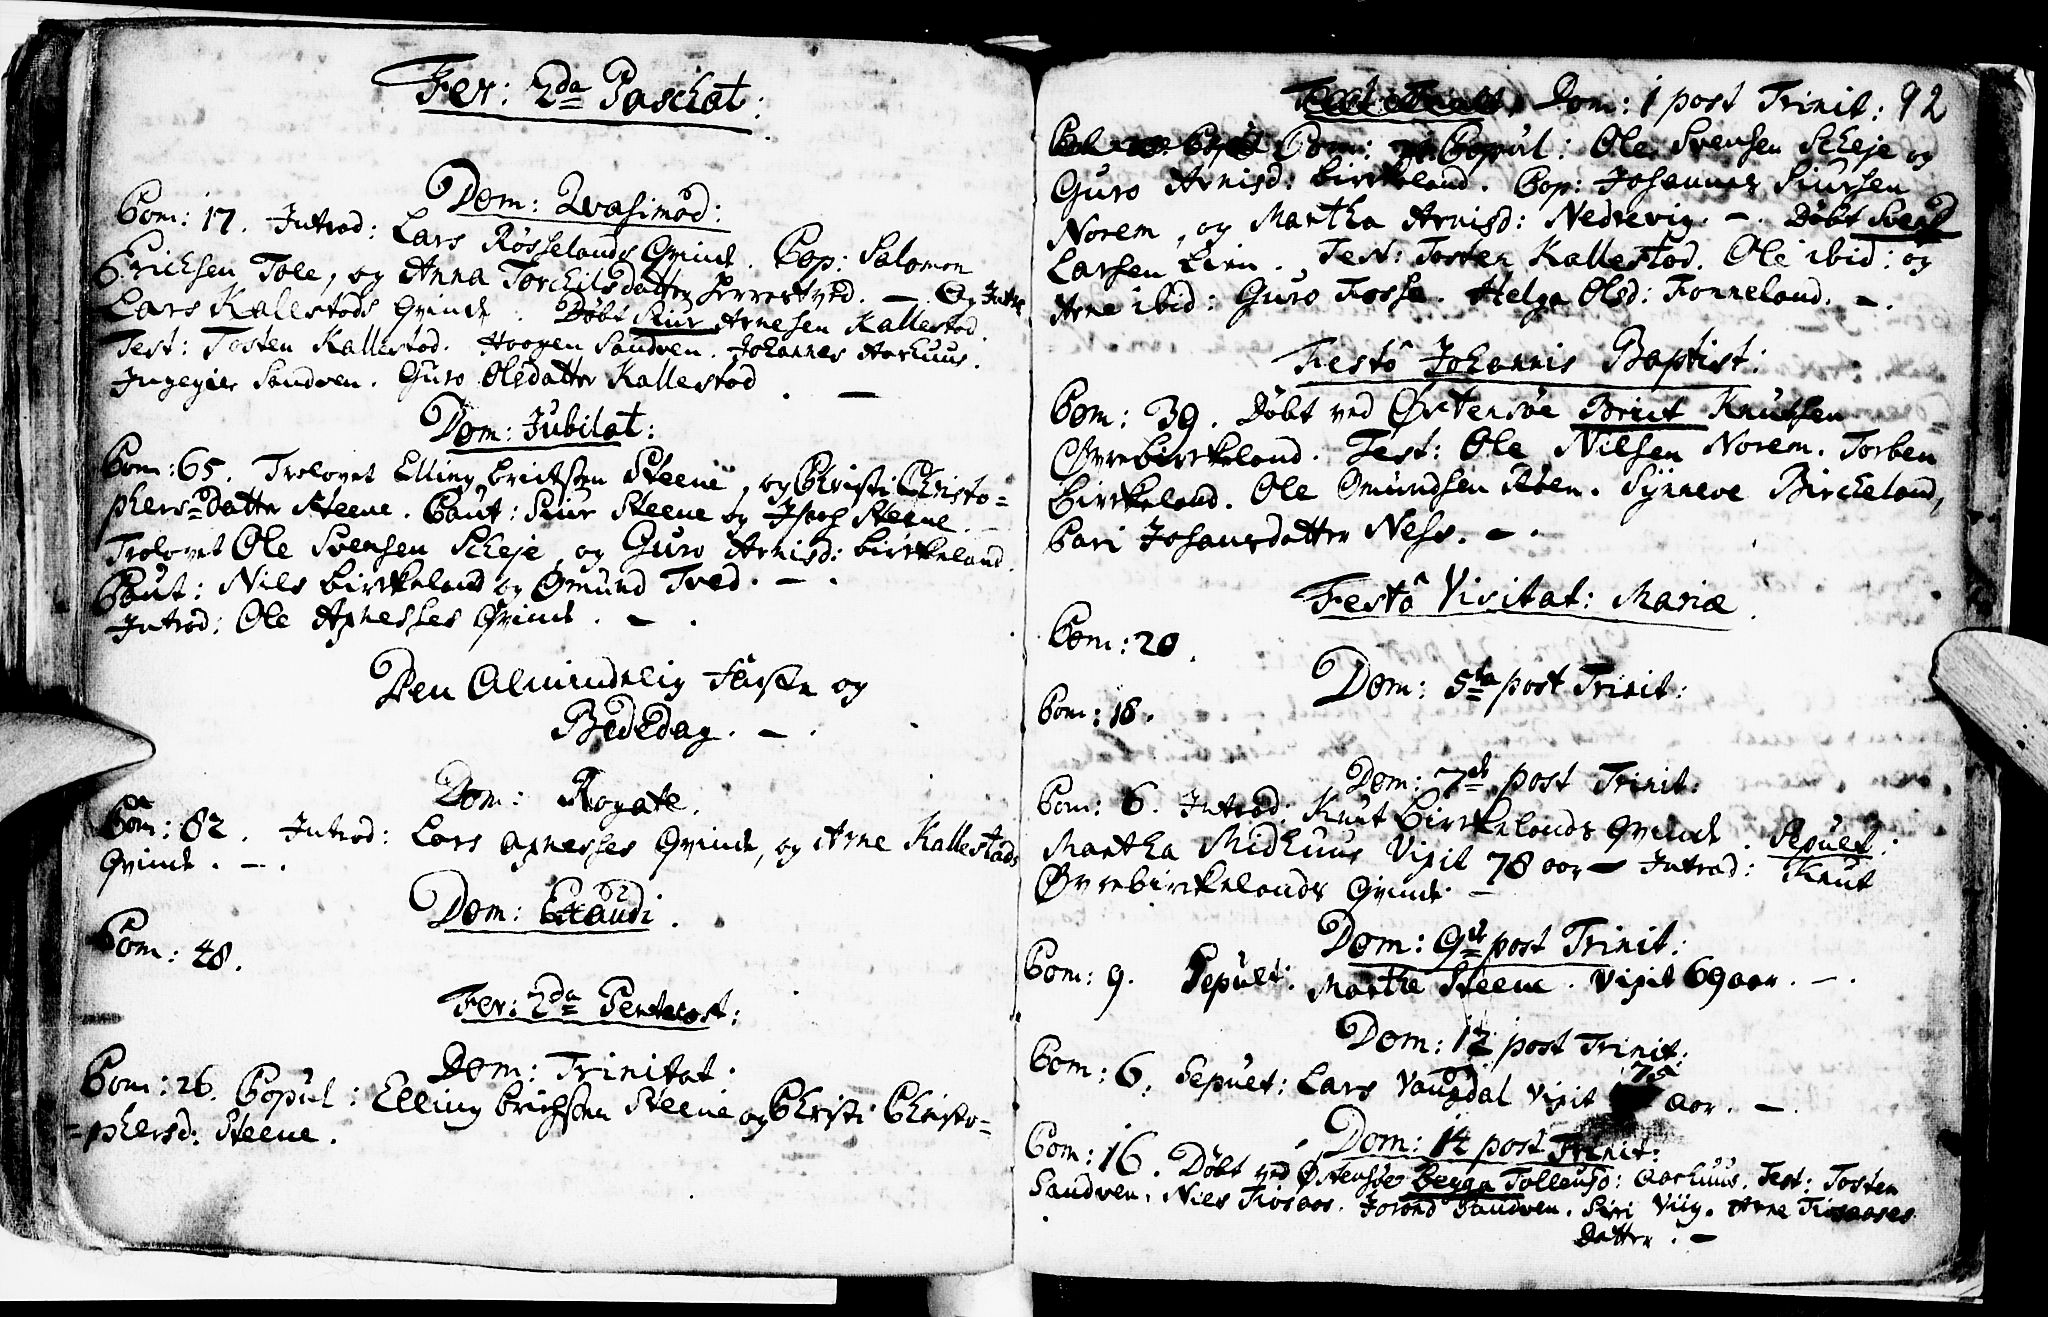 Fer: 2da Paschat:
Dom: Qvasimod:
Com: 17. Introd: Lars Røsselands Qvinde. Cop: Salomon
Erichsen Tole, og Anna Torchilsdatter Berrestved. — Og Intr
Lars Kallestøds Qvinde. Døbt Siur Arnesen Kallestød
Test: Tosten Kallestød. Haagen Sandven. Johannes Aarhuus.
Ingegier Sandven. Guro Olsdatter Kallestød. —
Dom: Jubilat:
Com: 65. Trolovet Elling Erichsen Steene, og Christi Christo=
phers=Datter Steene. Caut: Siur Steene og Steene. —
Trolovet Ole Svensen Scheje, og Guro Arnisd: Birkeland.
Caut: Niels Birkeland og Omund Tved. —.
Introd: Ole Axnesses Qvinde. —.
Den Almindelig Faste og
Bededag. —.
Dom: Rogate.
Com: 82. Introd: Lars Axnesses Qvinde, og Arne Kallestøds
Qvinde. —.
Dom: Exaudi.
Com: 48.
Fer: 2da Pentecost:
Dom: Trinitat:
Com: 26. Copul: Elling Erichsen Steene og Christi Christo=
=phersd: Steene.
Dom: 1 post Trinit: 92
Com: Copul: Ole Svensen Scheje og
Guro Arnisd: Birkeland. Cop: Johannes Siursen
Norem, og Martha Arnisd: Nedrevig. —. Døbt Svend
Larsen Lien. Test: Tosten Kallestød. Ole ibid: og
Arne ibid: Guro Fosse. Helga Olsd: Fonneland. —.
Festô Johannis Baptist:
Com: 39. Døbt ved Østensøe Brict Knutsen
Øvrebirkeland. Test: Ole Nilsen Norem. Torben
Birkeland. Ole Omundsen Røen. Synneve Bircheland,
Cari Johansdatter Ness. —.
Festô Visitat: Mariæ.
Com: 20.
Dom: 5ta post Trinit:
Com: 18.
Dom: 7de post Trinit:
Com: 6. Introd: Knut Birkelands Qvinde. Sepult:
Martha Midhuus Vixit 78 aar — Introd: Knut
Øvrebirkelands Qvinde —
Dom: 9de post Trinit:
Com: 9. Sepult: Marthe Steene. Vixit 69 aar. —.
Dom: 12 post Trinit:
Com: 6. Sepult: Lars Vangdal Vixit 70 aar. —.
Dom: 14 post Trinit:
Com: 16. Døbt ved Østensøe Begga Tollevsd: Aarhuus. Test: Tosten
Sandven. Niels Tiosaas. Jorond Sandven. Siri Viig. Arne Tiosaases
Datter. —